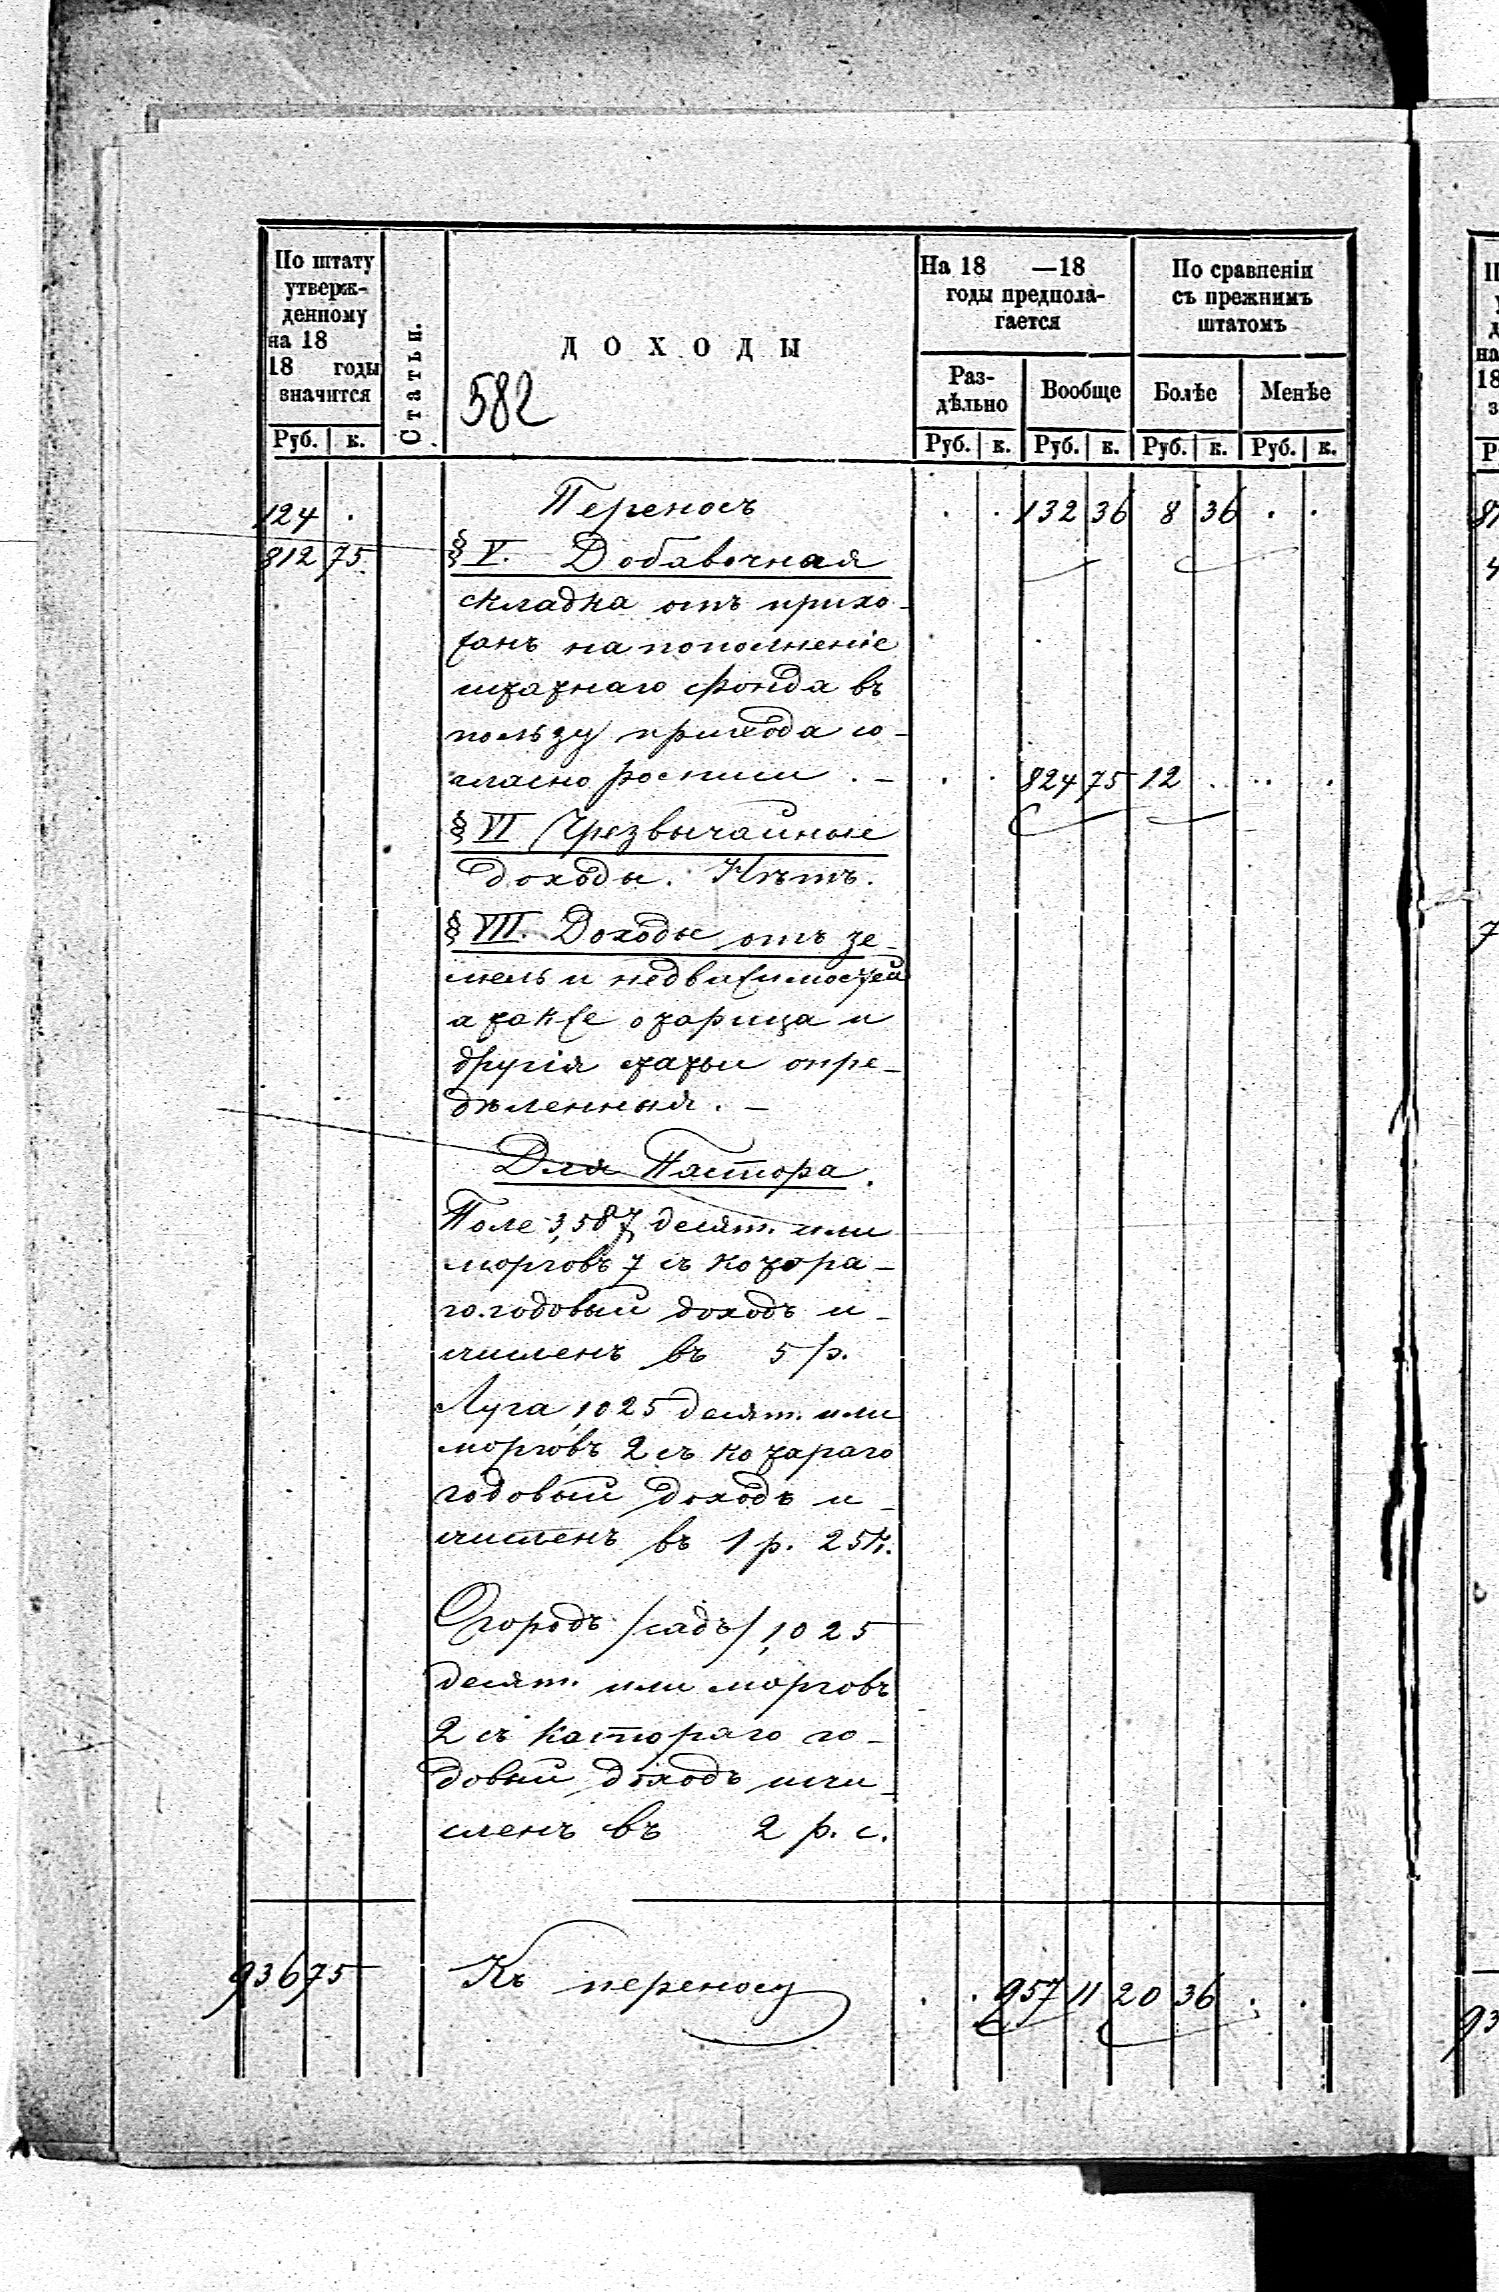 По штату
утверж-
денному
на 18
18 годы
значится
Руб. к.
Статьи.
ДОХОДЫ
582
На 18 —18
годы предпола-
гается
Раз-
дѣльно
Вообще
Руб. к. Руб. к.
По сравненіи
съ прежнимъ
штатомъ
Болѣе Менѣе
Руб. к. Руб. к.
124 . Переносъ . . 132 36 8 36 . .
812 75 § V. Добавочная
складка отъ прихо-
жанъ на пополненіе
штатнаго фонда въ
пользу прихода со-
гласно росписи . — . . 824 75 12 . .. .
§ VI Чрезвычайные
доходы. Нѣтъ.
§ VII. Доходы отъ зе-
мель и недвижимостей
а также отарица и
другія статьи опре-
дѣленныя. —
Для Пастора.
Поле 3,587 десят. или
морговъ 7 съ котора-
го годовый доходъ и-
счисленъ въ 5 р.
Луга 1,025 десят. или
морговъ 2 съ котараго
годовый доходъ и-
счисленъ въ 1 р. 25 к.
Огородъ /садъ/ 1,025
десят. или морговъ
2 съ катораго го-
довый доходъ исчи-
сленъ въ 2 р. с.
936 75 Къ переносу . . 957 11 20 36 . .